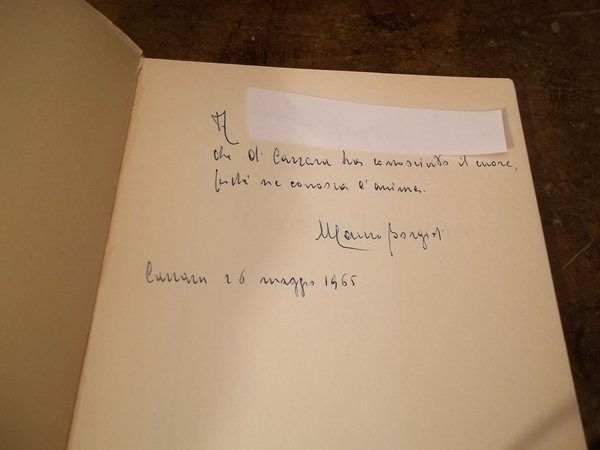 A
che di Carrara ha conosciuto il cuore,
perché ne conosca l'anima.
Mauro Borgioli
Carrara 26 maggio 1965